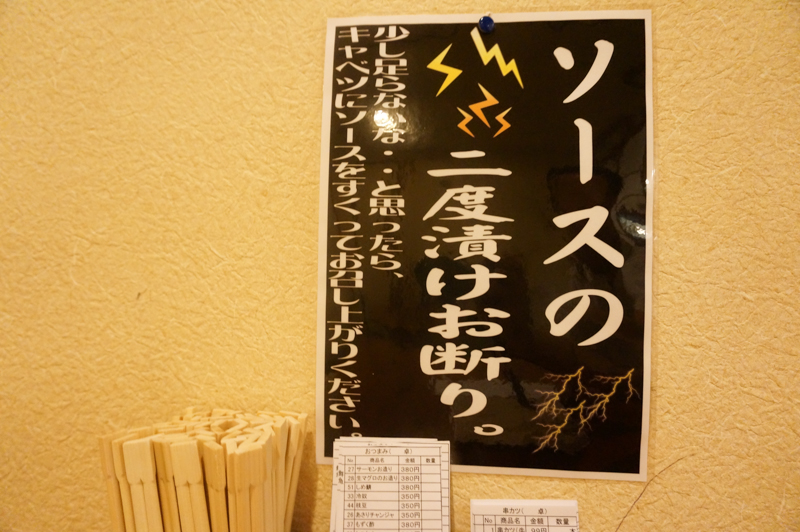 ソースの
二度漬けお断り。
少し足らないな・・と思ったら、
キャベツにソースをすくってお召し上がりください。
おつまみ( 卓)
No 商品名 金額 数量
27 サーモンお造り 380円
28 生マグロのお造り 380円
31 しめ鯖 380円
33 冷奴 350円
44 枝豆 350円
26 あさりチャンジャ 350円
37 もずく酢 380円
串カツ( 卓)
No 商品名 金額 数量